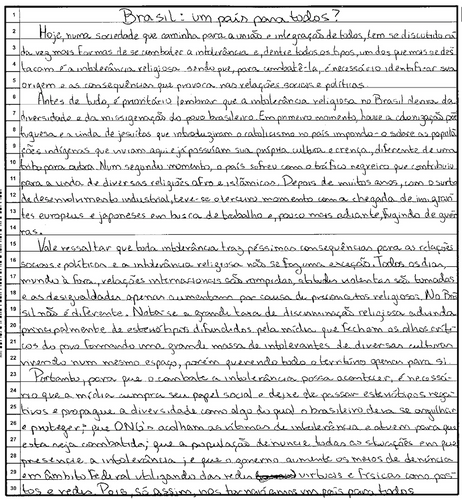 Brasil: um país para todos?
Hoje, numa sociedade que caminha para a união e integração de todos, tem se discutido ca
da vez mais formas de se combater a intolerância e, dentre todos os tipos, um dos que mais se des
tacam é a intolerância religiosa sendo que, para combatê-la, é necessário identificar sua
origem e as consequências que provoca nas relações sociais e políticas.
Antes de tudo, é prioritário lembrar que a intolerância religiosa no Brasil deriva da
diversidade e da missigenação do povo brasileiro. Em primeiro momento, houve a colonização por
tuguesa e a vinda de jesuítas que introduziram o catolicismo no país impondo-o sobre as popula
ções indígenas que viviam aqui e já possuíam sua própria cultura e crença, diferente de uma
tribo para outra. Num segundo momento, o país sofreu com o tráfico negreiro que contribuiu
para a vinda de diversas religiões afro e islâmicas. Depois de muitos anos, com o surto
de desenvolvimento industrial, teve-se o terceiro momento com a chegada de imigran
tes europeus e japoneses em busca de trabalho e, pouco mais adiante, fugindo de guer
ras.
Vale ressaltar que toda intolerância traz péssimas consequências para as relações
sociais e política e a intolerância religiosa não se faz uma exceção. Todos os dias,
mundo à fora, relações internacionais são rompidas, atitudes violentas são tomadas
e as desigualdades apenas aumentam por causa de preconceitos religiosos. No Bra
sil não é diferente. Nota-se a grande taxa de discriminação religiosa advinda
principalmente de estereótipos difundidos pela mídia que fecham os olhos críti-
cos do povo formando uma grande massa de intolerantes de diversas culturas
vivendo num mesmo espaço, porém querendo todo o território apenas para si.
Portanto, para que o combate a intolerância possa acontecer, é necessá
rio que a mídia cumpra seu papel social e deixe de passar estereótipos nega
tivos e propague a diversidade como algo do qual o brasileiro deva se orgulhar
e proteger; que ONG's acolham as vítimas de intolerância e atuem para que
esta seja combatida; que a população denuncie todas as situações em que
presencie a intolerância; e que o governo aumente os meios de denúncia
em âmbito Federal utilizando das redes virtuais e físicas como pos
tos e redes. Pois, só assim, nos tornaríamos um país para todos.
1
2
3
4
5
6
7
8
9
10
11
12
13
14
15
16
17
18
19
20
21
22
23
24
25
26
27
28
29
30